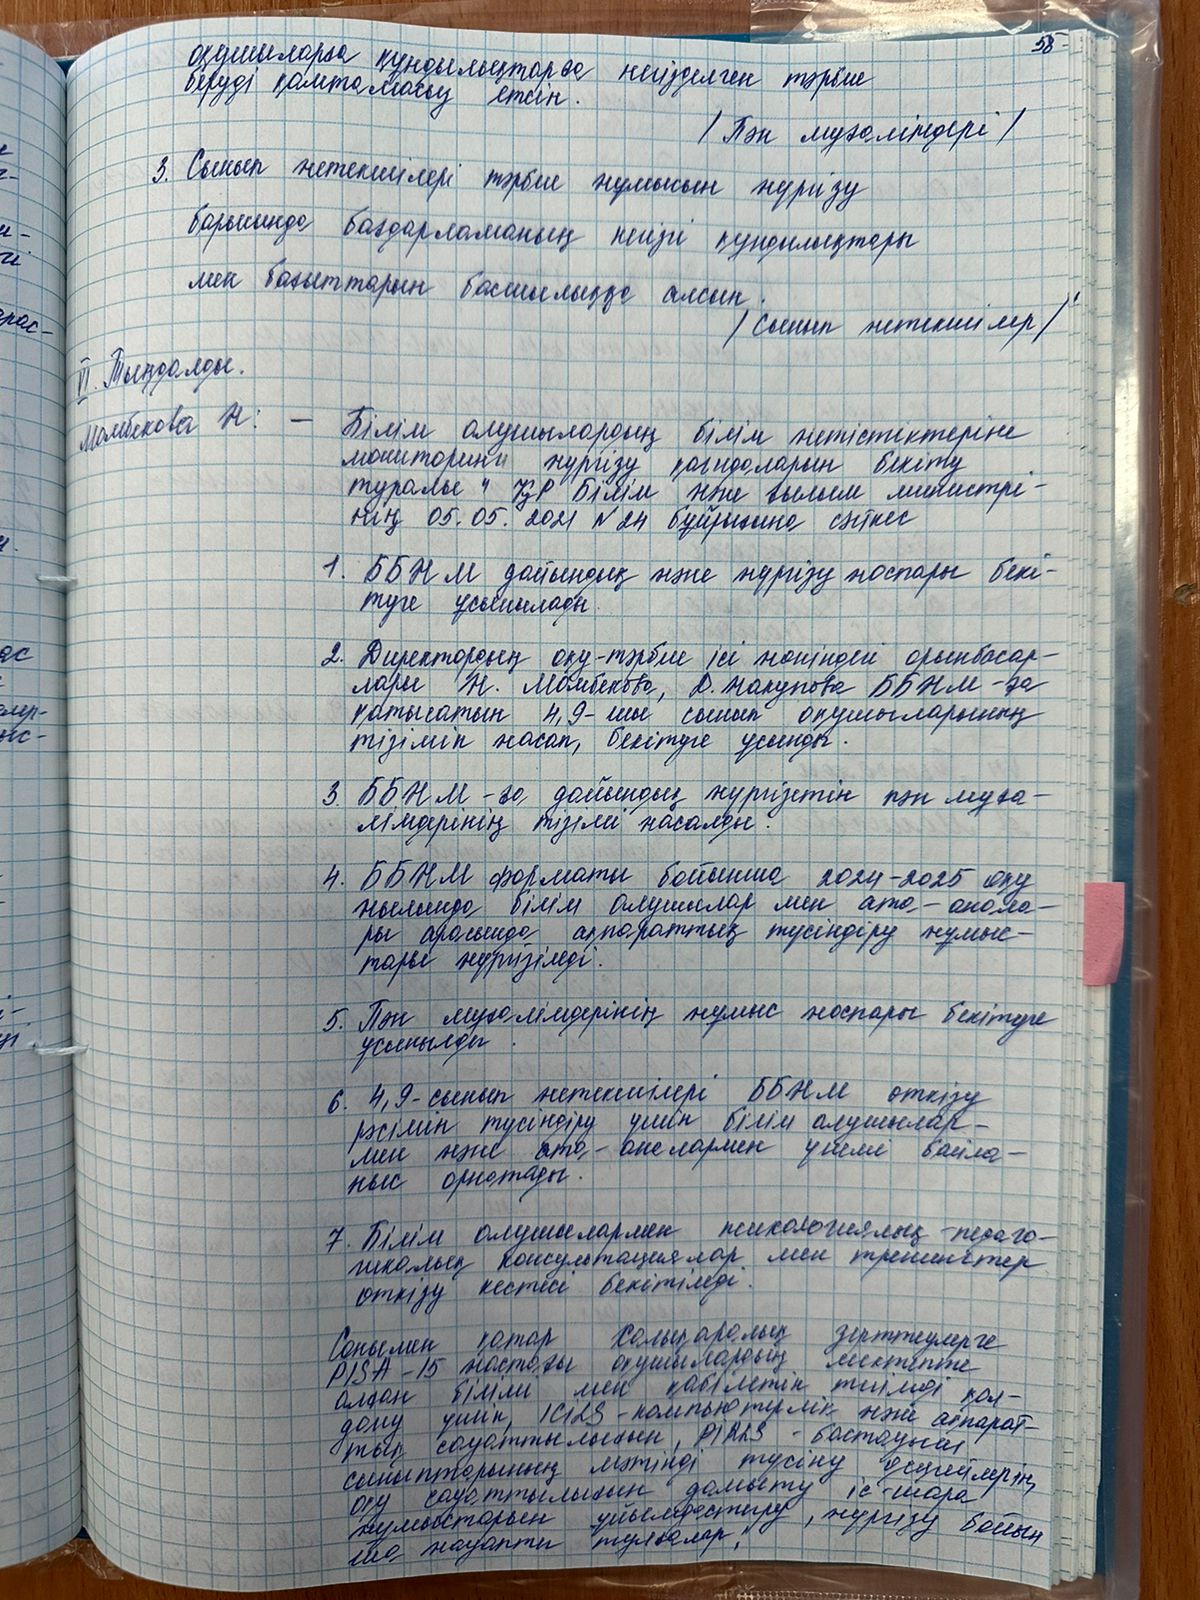 58
оқушыларға құндылықтарға негізделген тәрбие
беруді қамтамасыз етсін.
/ Пән мұғалімдері /
3. Сынып жетекшілері тәрбие жұмысын жүргізу
барысында бағдарламаның негізгі құндылықтары
мен бағыттарын басшылыққа алсын.
/ Сынып жетекшілер /
VI. Тыңдалды.
Мамбекова Н: – Білім алушылардың білім жетістіктеріне
мониторинг жүргізу қағидаларын бекіту
туралы" ҚР Білім және ғылым министрі-
нің 05.05.2021 №24 бұйрығына сәйкес
1. ББЖМ дайындық және жүргізу жоспары бекі-
туге ұсынылады.
2. Директордың оқу-тәрбие ісі жөніндегі орынбасар-
лары Н. Мамбекова, Д. Жакупова ББЖМ-ға
қатысатын 4,9-шы сынып оқушыларының
тізімін жасап, бекітуге ұсынды.
3. ББЖМ-ға дайындық жүргізетін пән мұға-
лімдерінің тізімі жасалды.
4. ББЖМ форматы бойынша 2024-2025 оқу
жылында білім алушылар мен ата-анала-
ры арасында ақпараттық түсіндіру жұмыс-
тары жүргізілді.
5. Пән мұғалімдерінің жұмыс жоспары бекітуге
ұсынылды.
6. 4,9-сынып жетекшілері ББЖМ өткізу
рәсімін түсіндіру үшін білім алушылар-
мен және ата-аналармен үнемі байла-
ныс орнатады.
7. Білім алушылармен психологиялық-педаго-
гикалық консультациялар мен тренингтер
өткізу кестесі бекітілді.
Сонымен қатар Халықаралық зерттеулерге
PISA-15 жастағы оқушылардың мектепте
алған білімі мен қабілетін тиімді қол-
дану үшін, ICILS-компьютерлік және ақпарат-
тық сауаттылығын, PIRLS-бастауыш
сыныптарының мәтінді түсіну деңгейлерін,
оқу сауаттылығын дамыту іс-шара
жұмыстарын ұйымдастыру, жүргізу бойын
ша жауапты тұлғалар: